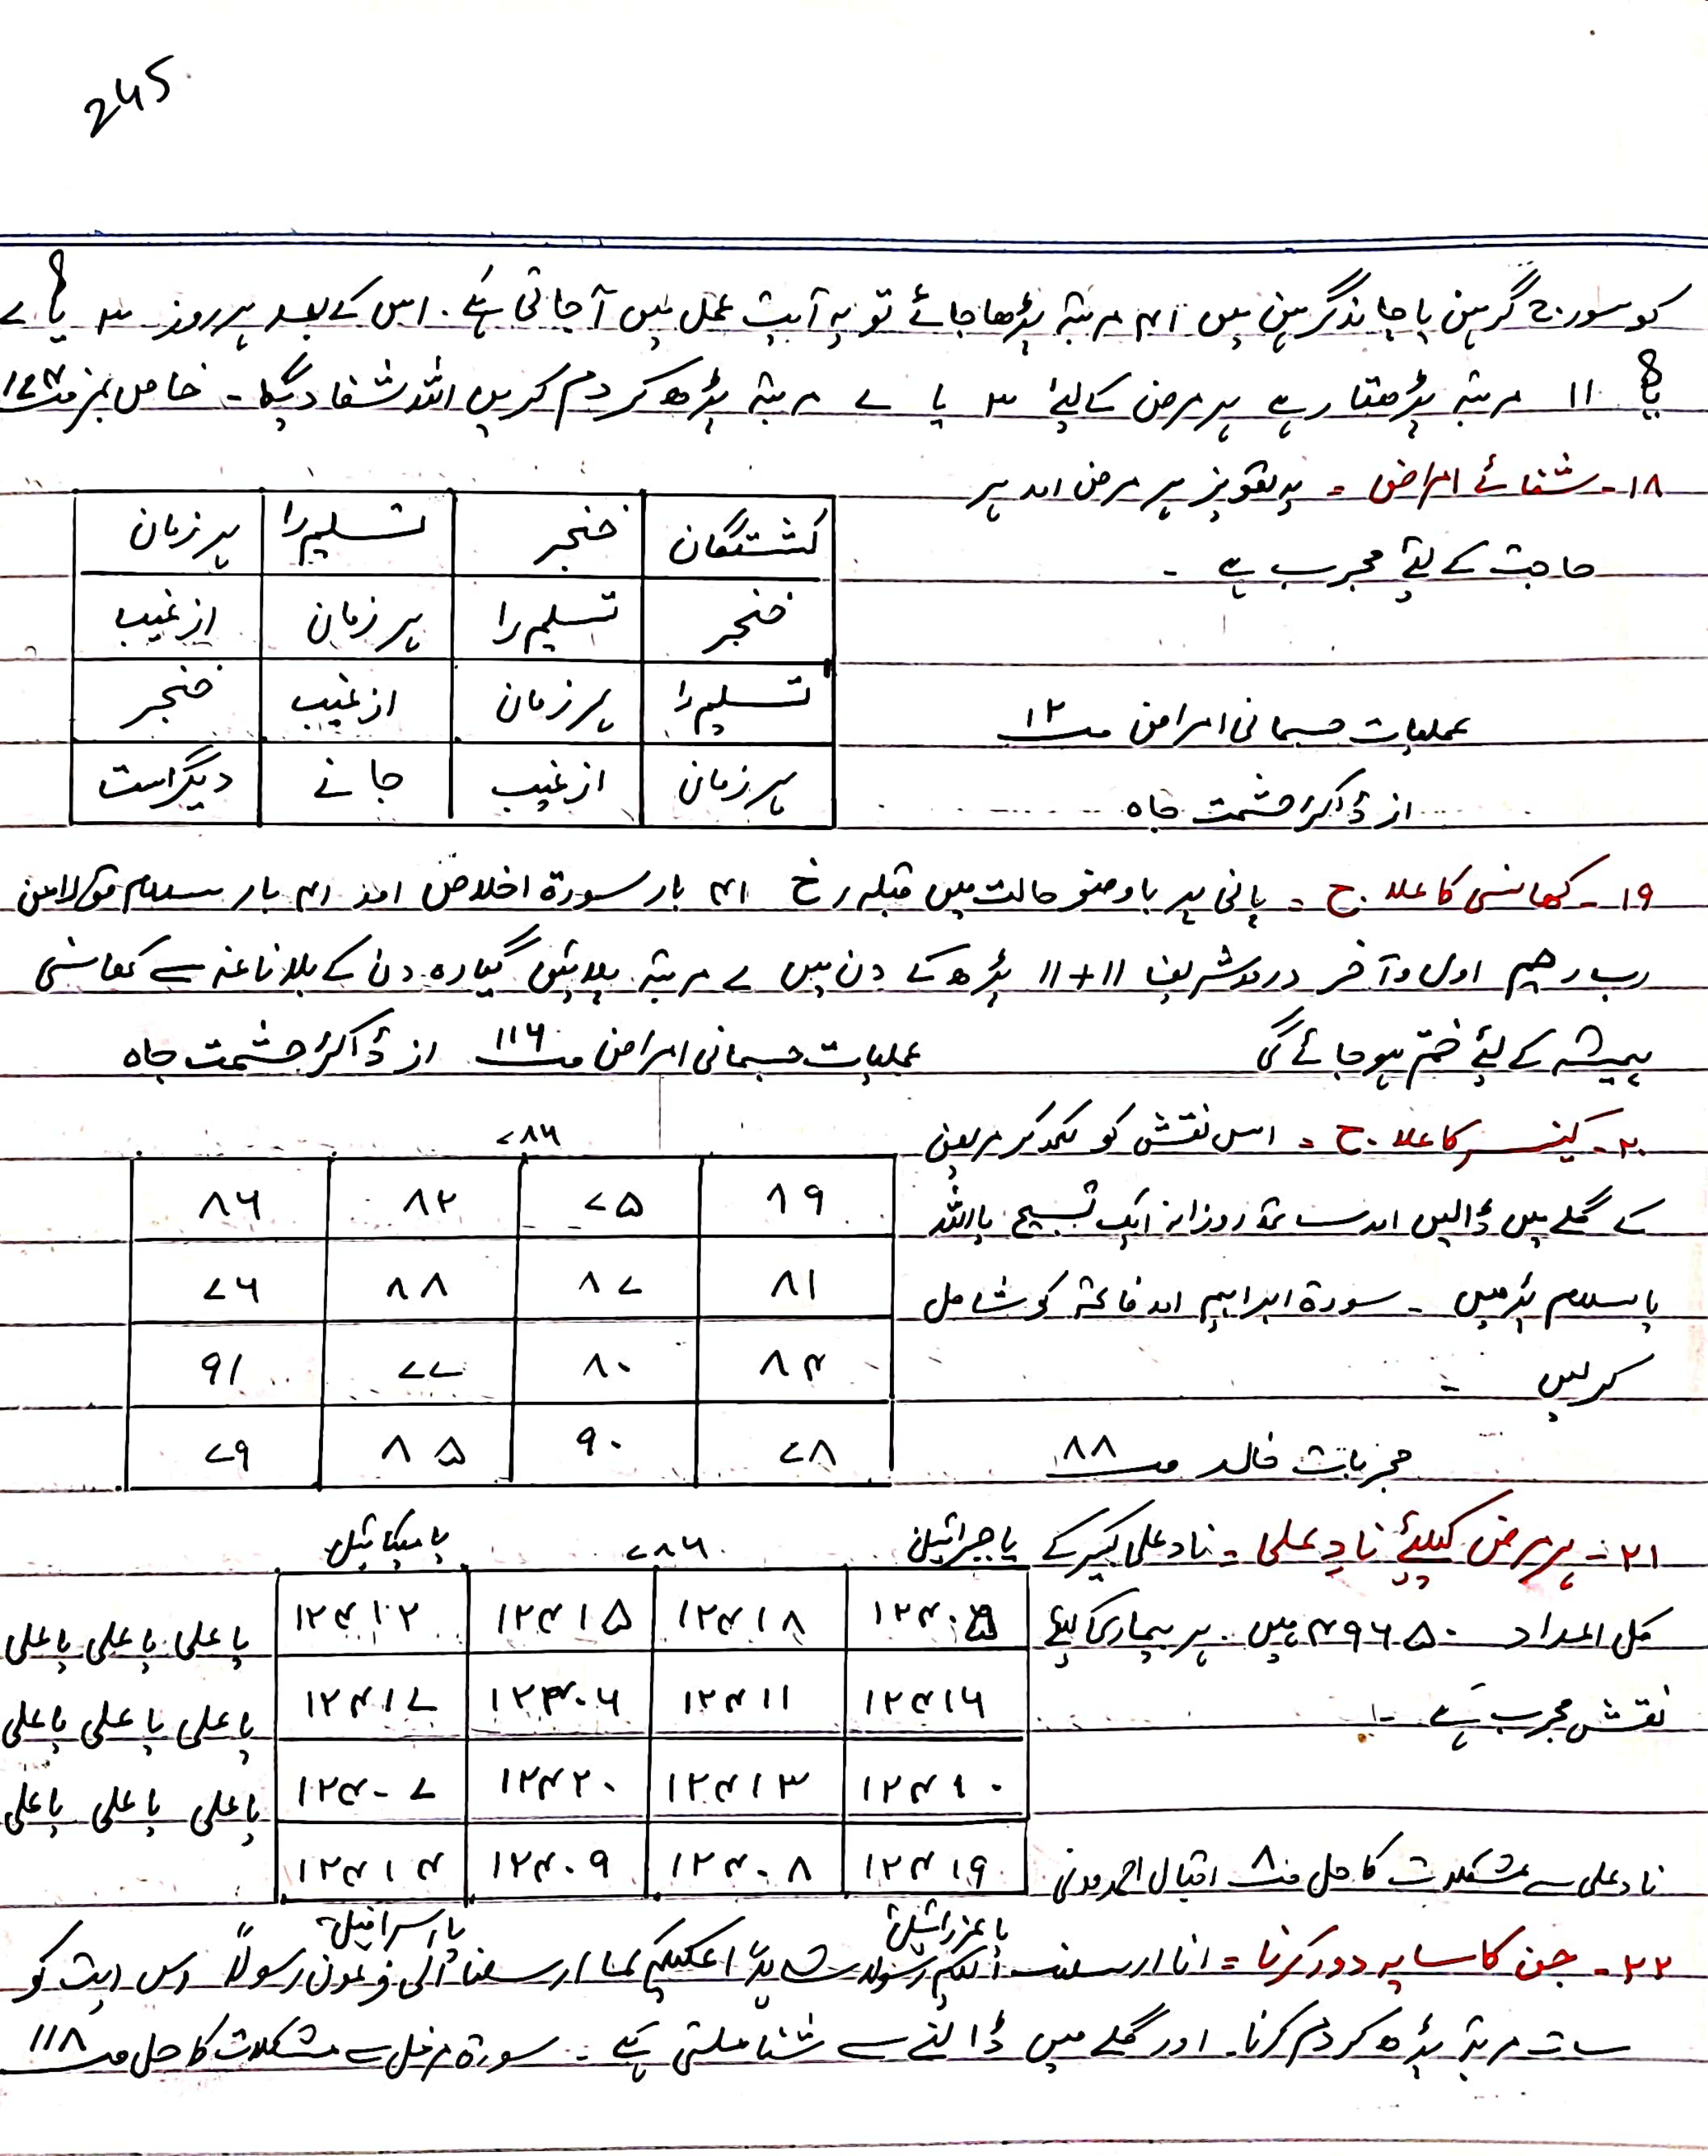 245
کو سورج گرہن یا چاند گرہن میں ۴۱ مرتبہ پڑھا جائے تو یہ آیت عمل میں آجاتی ہے۔ اس کے بعد ہر روز ۳ یا ۷
یا ۱۱ مرتبہ پڑھتا رہے ہر مرض کے لئے ۳ یا ۷ مرتبہ پڑھ کر دم کریں اللہ شفا دیگا۔ خاص نمبر
۱۸۔ شفائے امراض = یہ تعویز ہر مرض اور ہر
حاجت کے لئے مجرب ہے ۔
کشتگان خنجر تسلیم را ہر زمان
خنجر تسلیم را ہر زمان از غیب
تسلیم را ہر زمان از غیب خنجر
ہر زمان از غیب جانے دیگر است
عملیات جسمانی امراض ص ۱۲
از ڈاکٹر حشمت جاہ
۱۹۔ کھانسی کا علاج = پانی پر باوضو حالت میں قبلہ رخ ۴۱ بار سورۃ اخلاص اور ۴۱ بار سلام قولا من
رب رحیم اول و آخر درود شریف ۱۱+۱۱ پڑھ کے دن میں ۷ مرتبہ پلائیں گیارہ دن کے بلا ناغہ سے کھانسی
ہمیشہ کے لئے ختم ہو جائے گی عملیات جسمانی امراض ص ۱۱۶ از ڈاکٹر حشمت جاہ
۲۰۔ کینسر کا علاج = اس نقش کو لکھ کر مریض
کے گلے میں ڈالیں اور ساتھ روزانہ ایک تسبیح یا اللہ
یا سلام پڑھیں ۔ سورۃ ابراہیم اور فاتحہ کو شامل
کرلیں ۔
مجربات خالد ص ۸۸
۷۸۶
۸۹ ۷۵ ۸۲ ۸۶
۸۱ ۸۷ ۸۸ ۷۶
۸۴ ۸۰ ۷۷ ۹۱
۷۸ ۹۰ ۸۵ ۷۹
۲۱۔ ہر مرض کیلئے نادِ علی = ناد علی کبیر کے
کل اعداد ۴۹۶۵۰ ہیں۔ ہر بیماری کیلئے
نقش مجرب ہے ۔
ناد علی سے مشکلات کا حل ص ۸ اقبال احمد مدنی
یا جبرائیل ۷۸۶ یا میکائیل
۱۲۴۰۵ ۱۲۴۱۸ ۱۲۴۱۵ ۱۲۴۱۲
۱۲۴۱۶ ۱۲۴۱۱ ۱۲۴۰۶ ۱۲۴۱۷
۱۲۴۱۰ ۱۲۴۱۳ ۱۲۴۲۰ ۱۲۴۰۷
۱۲۴۱۹ ۱۲۴۰۸ ۱۲۴۰۹ ۱۲۴۱۴
یا عزرائیل یا اسرافیل
یا علی یا علی یا علی
یا علی یا علی یا علی
یا علی یا علی یا علی
۲۲۔ جن کا سایہ دور کرنا = انا ارسلنا الیکم رسولا شاہدا علیکم کما ارسلنا الی فرعون رسولاً اس ایت کو
سات مرتبہ پڑھ کر دم کرنا۔ اور گلے میں ڈالنے سے شفا ملتی ہے ۔ سورۃ مزمل سے مشکلات کا حل ص ۱۱۸